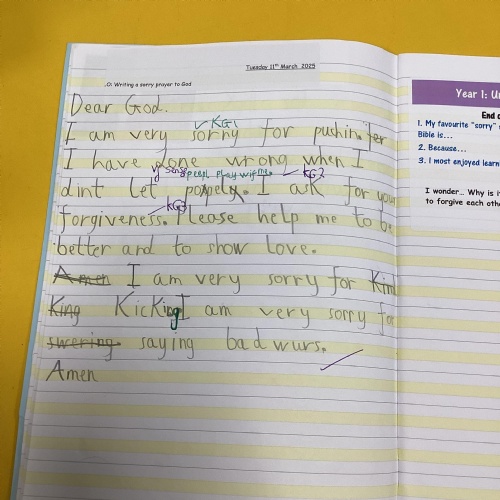 Tuesday 11th March 2025
LO: Writing a sorry prayer to God
Dear God.
KG1
I am very sorry for pushin
I have done wrong when I
peepl play wif me. KG2
dint let I ask for your
KG3
forgiveness. Please help me to be
better and to show Love.
Amen I am very sorry for
King KicKing I am very sorry for
swering saying bad wurs.
Amen
Year 1: Un
End o
1. My favourite "sorry"
Bible is...
2. Because...
3. I most enjoyed learn
I wonder... Why is i
to forgive each othe